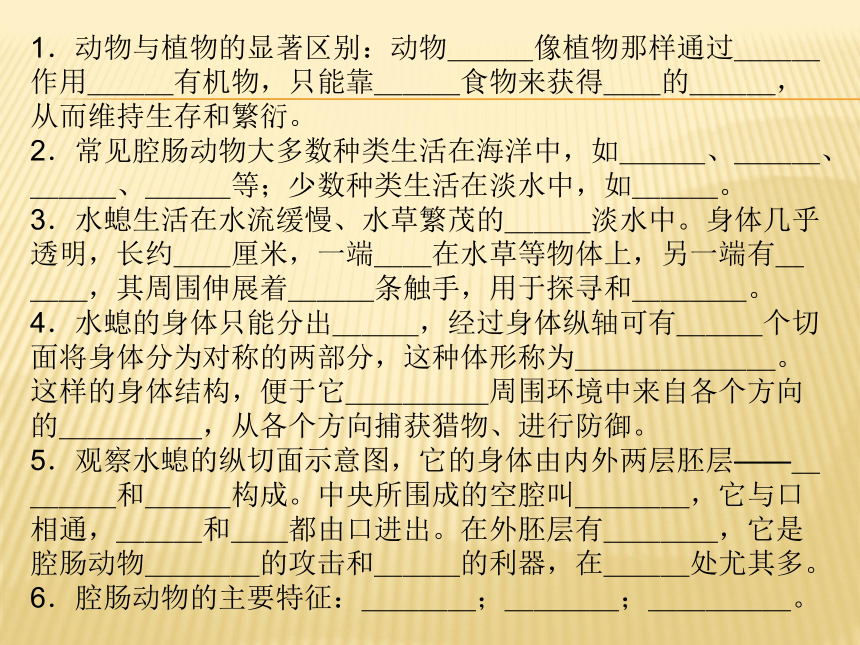 1．动物与植物的显著区别：动物______像植物那样通过______
作用______有机物，只能靠______食物来获得____的______，
从而维持生存和繁衍。
2．常见腔肠动物大多数种类生活在海洋中，如______、______、
______、______等；少数种类生活在淡水中，如______。
3．水螅生活在水流缓慢、水草繁茂的______淡水中。身体几乎
透明，长约____厘米，一端____在水草等物体上，另一端有__
____，其周围伸展着______条触手，用于探寻和________。
4．水螅的身体只能分出______，经过身体纵轴可有______个切
面将身体分为对称的两部分，这种体形称为______________。
这样的身体结构，便于它__________周围环境中来自各个方向
的__________，从各个方向捕获猎物、进行防御。
5．观察水螅的纵切面示意图，它的身体由内外两层胚层——__
______和______构成。中央所围成的空腔叫________，它与口
相通，______和____都由口进出。在外胚层有________，它是
腔肠动物________的攻击和______的利器，在______处尤其多。
6．腔肠动物的主要特征：________；________；__________。